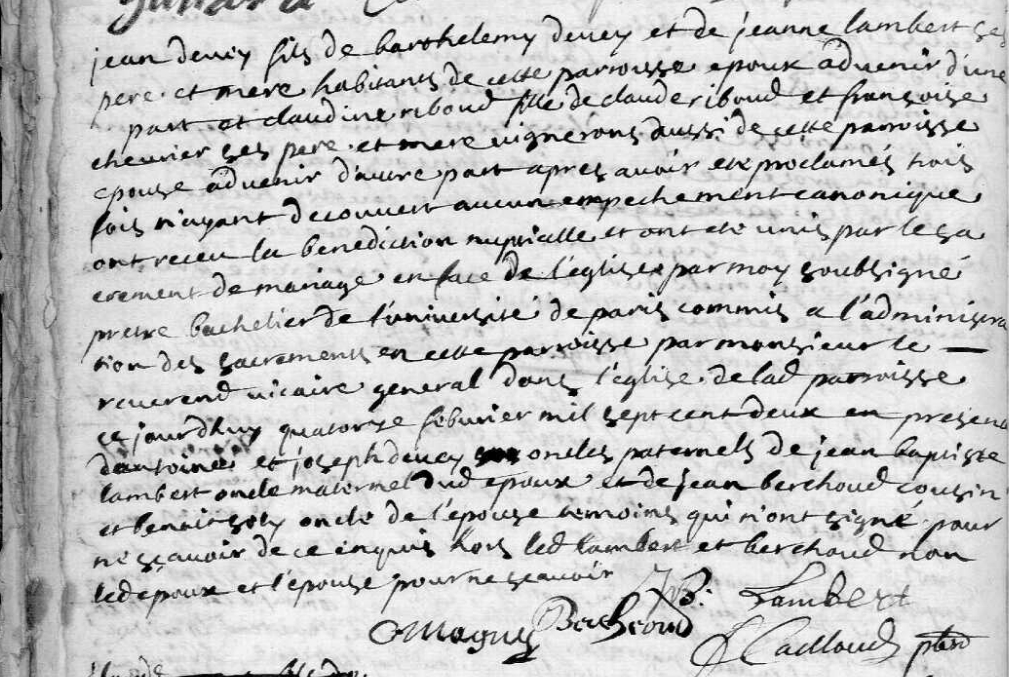 jean devey fils de barthelemy devey et de jeanne lambert ses
pere et mere habitants de cette parroisse epoux advenir d'une
part et claudine riboud fille de claude riboud et françoise
chevrier ses pere et mere vignerons aussi de cette parroisse
epouse advenir d'autre part apres avoir eté proclamés trois
fois n'ayant decouvert aucun empechement canonique
ont receu la benediction nuptialle et ont eté unis par le sa
crement de mariage en face de l'eglise par moy soubsigné
pretre bachelier de l'université de paris commis a l'administra
tion des sacrements en cette parroisse par monsieur le
reverend vicaire general dans l'eglise de lad parroisse
ce jourdhuy quatorze febvrier mil sept cent deux en presence
d'antoine et joseph devey oncles paternels de jean baptiste
lambert oncle maternel dud epoux et de jean berchoud cousin
et benoit oncle de l'epouse temoins qui n'ont signé pour
ne sçavoir de ce enquis hors led lambert et berchoud non
led epoux et l'epouse pour ne scavoir
JB: Lambert
Magny Berchoud
Caillaud